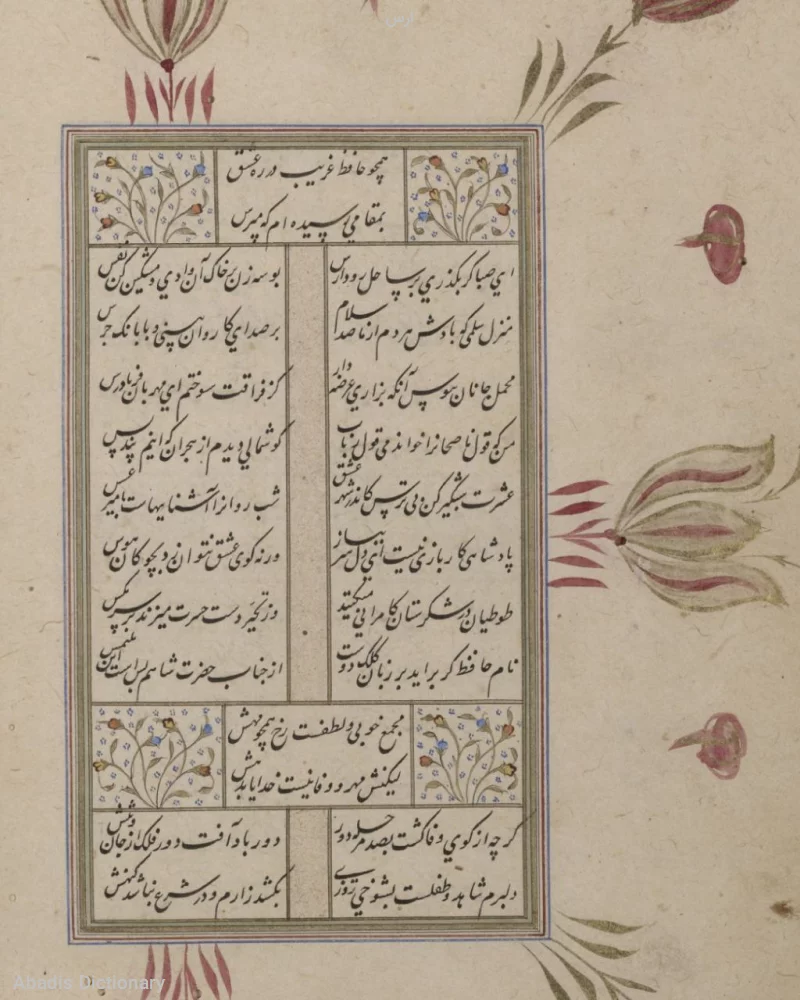 ارس
همچو حافظ غریب در ره عشق
بمقامی رسیده ام که مپرس
ای صبا گر بگذری بر ساحل رود ارس
بوسه زن بر خاک آن وادی و مشکین کن نفس
منزل سلمی که بادش هر دم از ما صد سلام
بر صدای کاروان بینی و با بانک جرس
محمل جانان ببوس آنکه بزاری عرضه دار
کز فراقت سوختم ای مهربان فریاد رس
من که قول ناصحانرا خواندمی قول رباب
کوشمالی دیدم از هجران که اینم پند بس
عشرت شبگیر کن می ترس کاندر شهر عشق
شب روانرا آشنایهاست با میر عسس
پادشاهی کار بازی نیست ای دل سر بباز
ورنه کوی عشق نتوان زد بچوکان هوس
طوطیان در شکرستان کامرانی میکنند
وز تحیر دست حسرت میزند بر سر مکس
نام حافظ کر براید بر زبان کلک دوست
از جناب حضرت شاهم بس است این ملتمس
مجمع خوبی و لطفست رخ همچو مهش
لیکنش مهر و وفا نیست خدایا بدهش
گر چه از کوی وفا گشت بصد مرحله دور
دور باد آفت دور فلک از جان و تنش
دلبرم شاهد و طفلست بشوخی روزی
بکشد زارم و در شرع نباشد کنهش
Abadis Dictionary